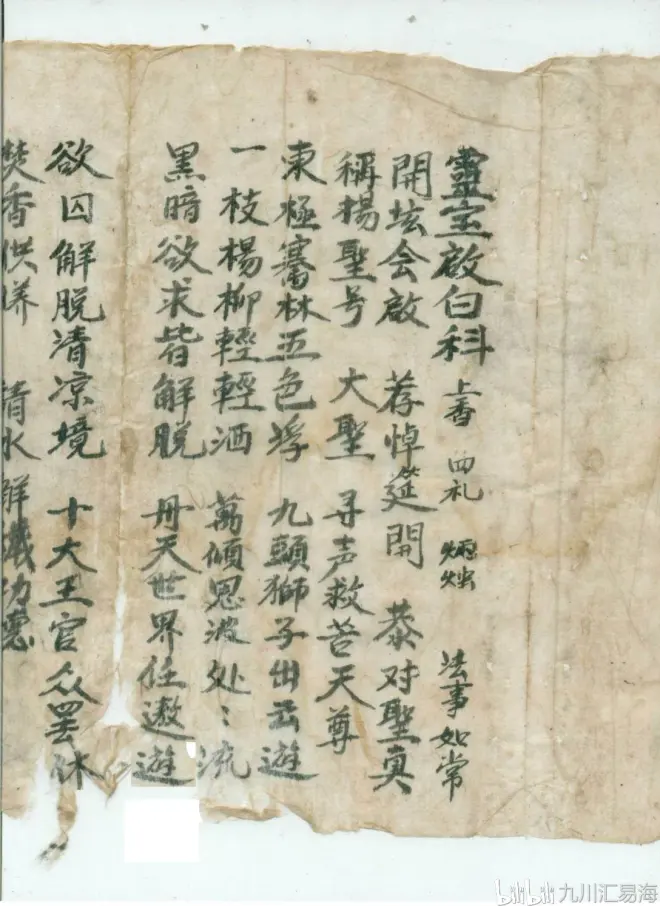 靈宝啟白科 上香 四礼 法事如常
開坛会啟 荐悼筵開 恭对聖真
稱揚聖号 大聖 寻声救苦天尊
東極騫林五色浮 九頭獅子出云遊
一枝楊柳輕輕洒 萬傾恩波处〻流
黑暗欲求皆解脱 丹天世界任遨遊
欲囚解脱清凉境 十大王官众罢休
焚香供养 清水解穢功德
bilibili 九川汇易海